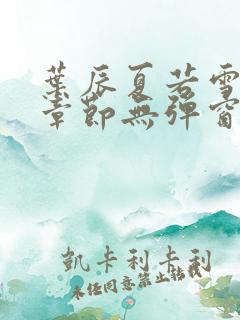 葉辰夏若雪
章節無彈窗
凱卡利卡利
未經同意禁止轉載